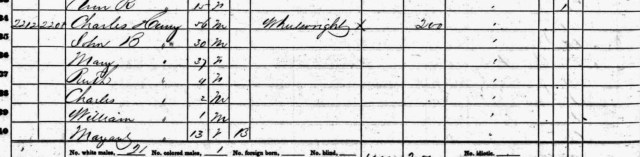 Ann R " 15 f
34 2212 2209 Charles Henry 56 M Wheelwright X 200 "
35 John B " 30 M "
36 Mary " 37 f "
37 Ruth " 4 f "
38 Charles " 2 M "
39 William " 1 M "
40 13 f B "
No. white males, 21 No. colored males, 1 No. foreign born, No. blind, No. idiotic,